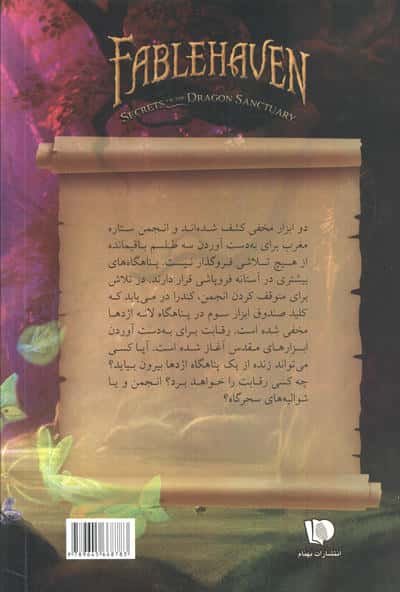 FABLEHAVEN
SECRETS OF THE DRAGON SANCTUARY
دو ابزار مخفی کشف شده‌اند و انجمن ستاره
مغرب برای به‌دست آوردن سه طلسم باقیمانده
از هیچ تلاشی فروگذار نیست. پناهگاه‌های
بیشتری در آستانه فروپاشی قرار دارند. در تلاش
برای متوقف کردن انجمن، کندرا در می‌یابد که
کلید صندوق ابزار سوم در پناهگاه لانه اژدها
مخفی شده است. رقابت برای به‌دست آوردن
ابزارهای مقدس آغاز شده است. آیا کسی
می‌تواند زنده از یک پناهگاه اژدها بیرون بیاید؟
چه کسی رقابت را خواهد برد؟ انجمن و یا
شوالیه‌های سحرگاه؟
انتشارات بهنام